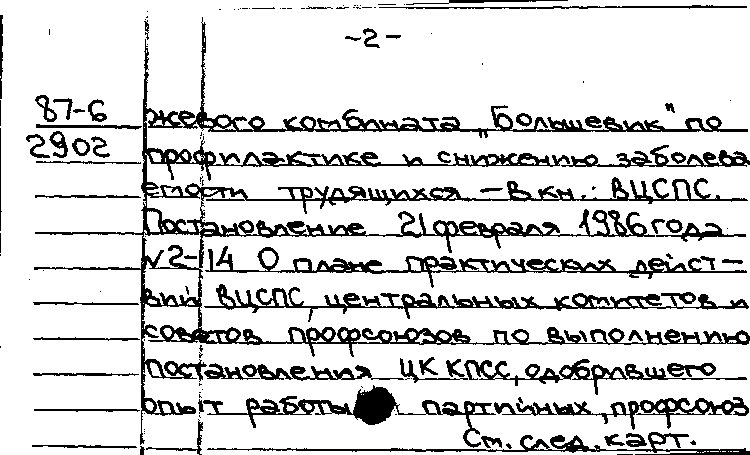 ~2-
87-6 жевого комбината „Большевик" по
2902 профилактике и снижению заболева
емости трудящихся – В кн.: ВЦСПС.
Постановление 21 февраля 1986 года
N 2-14 О плане практических дейст-
вий ВЦСПС, центральных комитетов и
советов профсоюзов по выполнению
постановления ЦК КПСС, одобрившего
опыт работы партийных, профсоюз
См. след. карт.